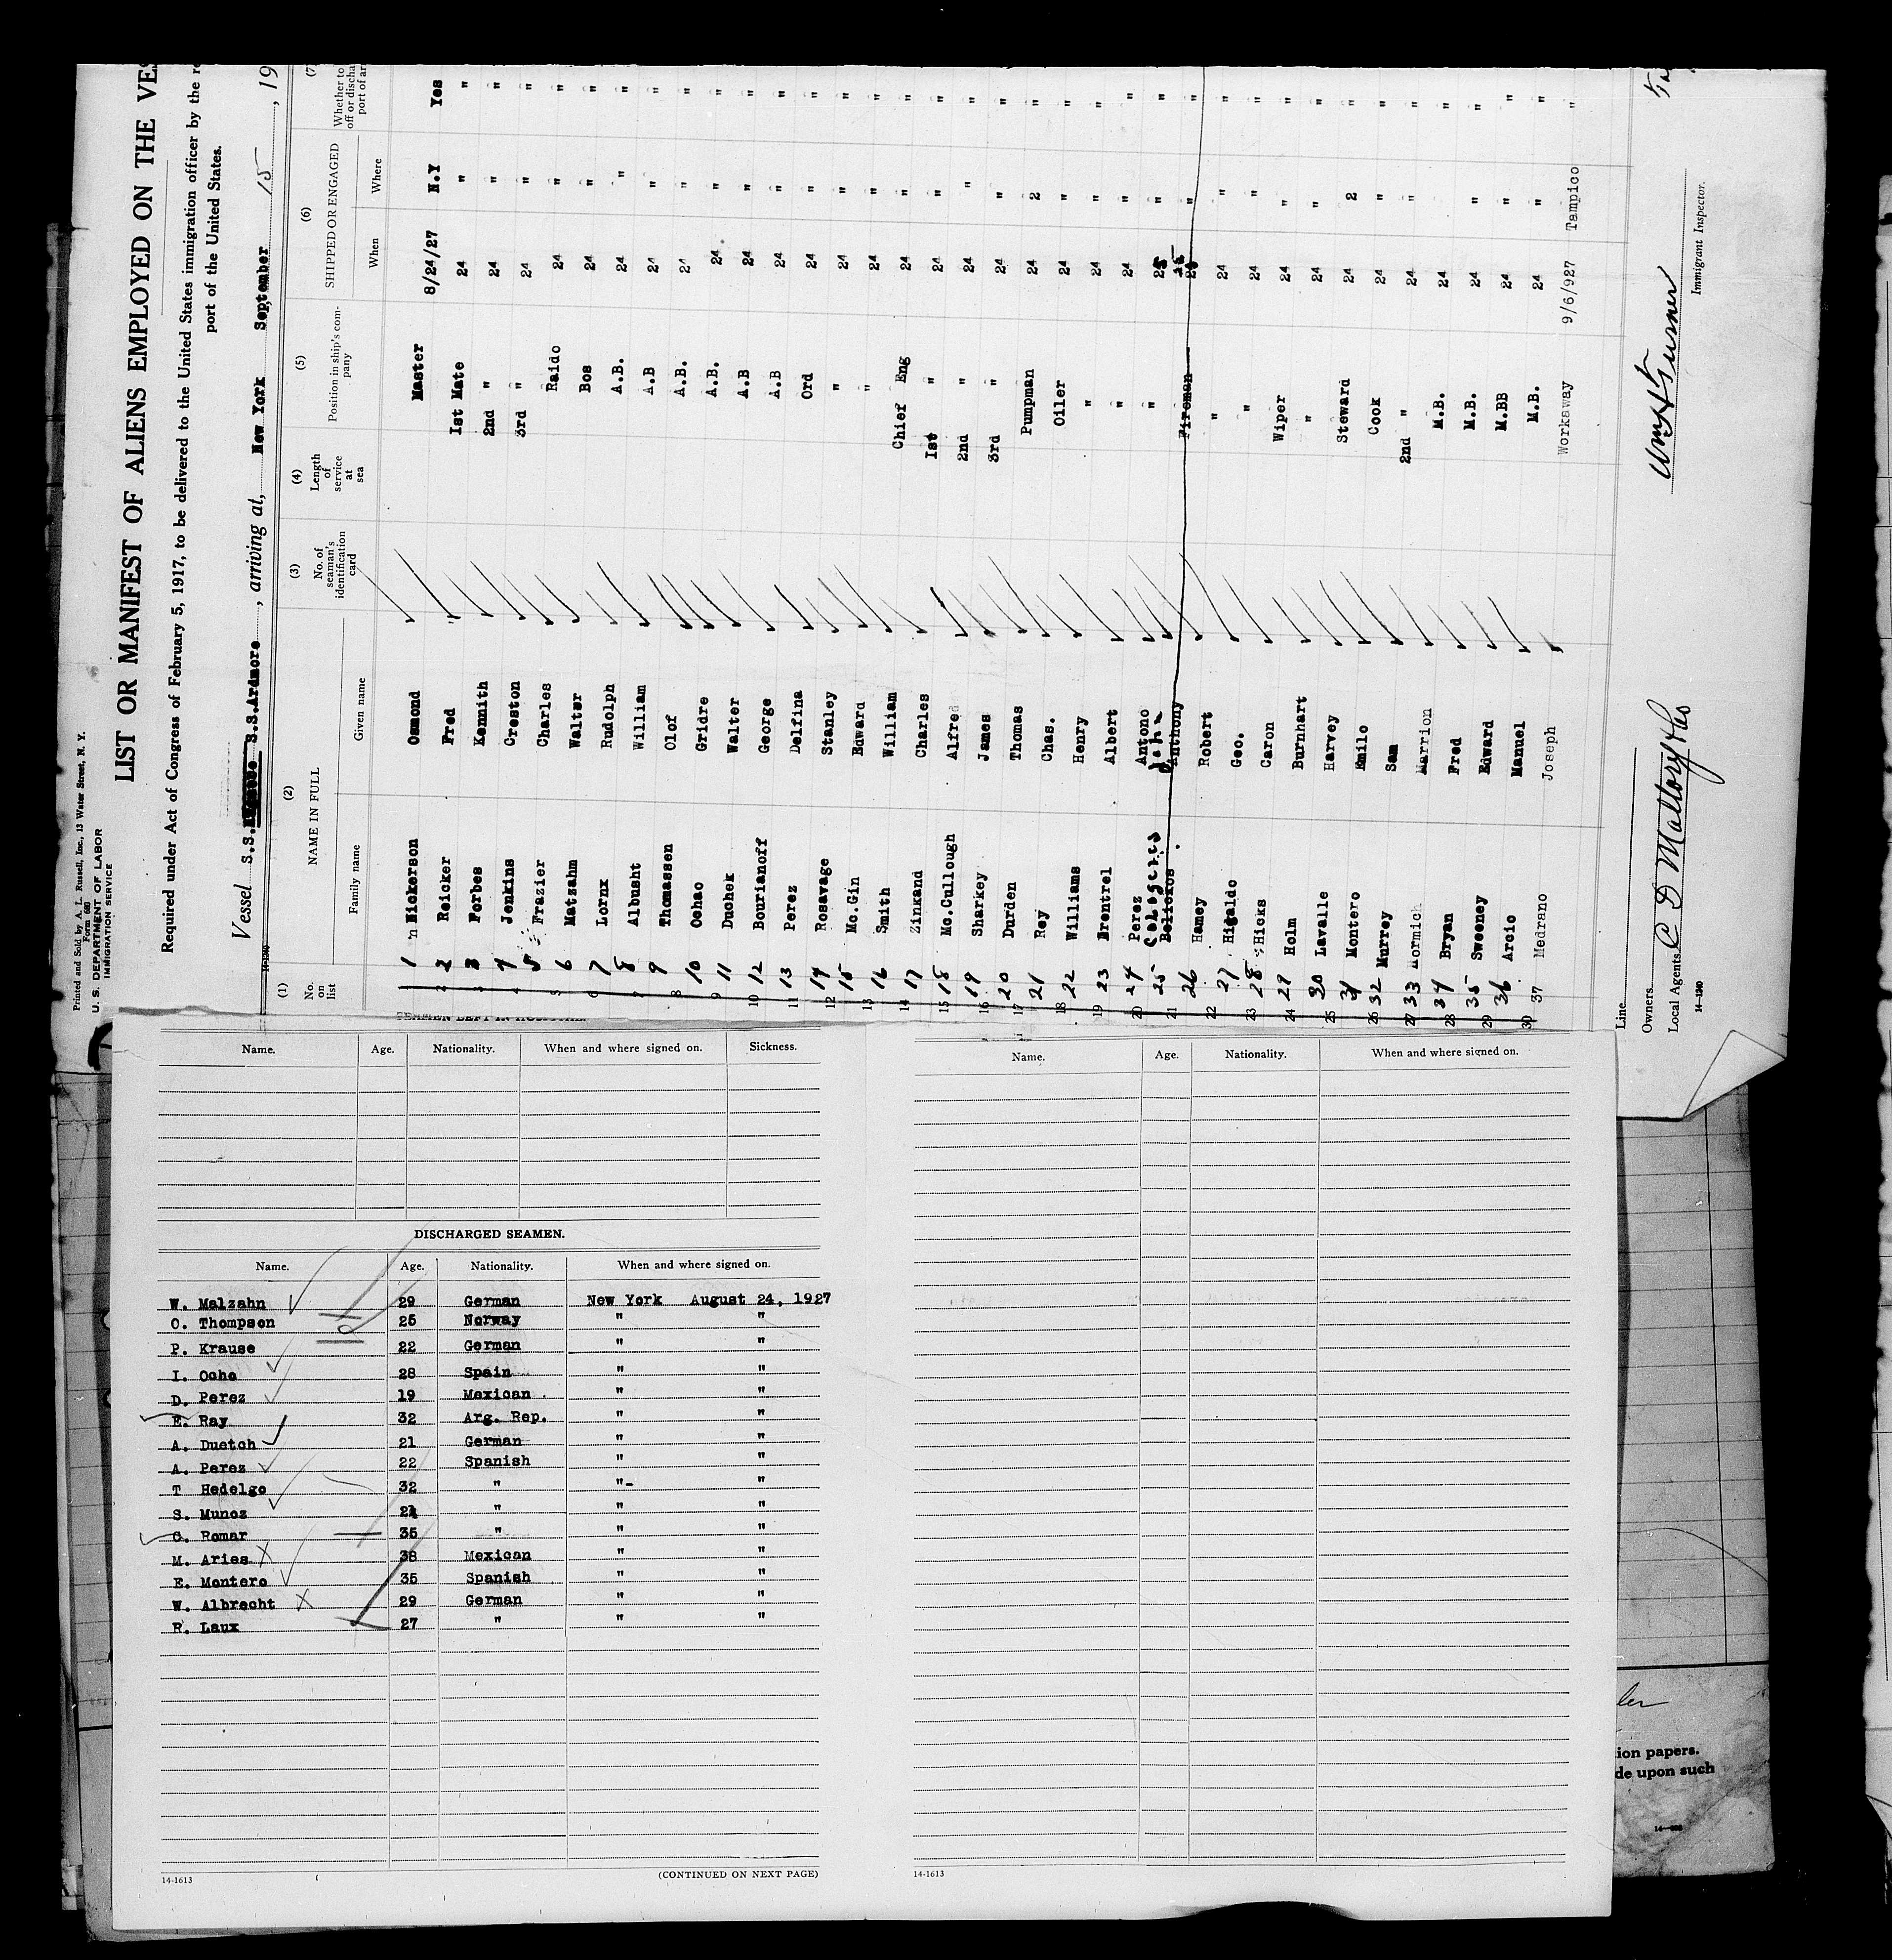 Printed and Sold by A. L. Russell, Inc., 13 Water Street, N. Y.
Form 680
U. S. DEPARTMENT OF LABOR
IMMIGRATION SERVICE
LIST OR MANIFEST OF ALIENS EMPLOYED ON THE VES
Required under Act of Congress of February 5, 1917, to be delivered to the United States immigration officer by the re
port of the United States.
Vessel S.S. S.S.Ardmore, arriving at, New York September 15, 19
14-1240
(1) (2) (3) (4) (5) (6) (7)
No. on list NAME IN FULL No. of seaman's identification card Length of service at sea Position in ship's company SHIPPED OR ENGAGED Whether to off or discha port of ar
Family name Given name When Where
1 Nickerson Osmond Master 8/24/27 N.Y Yes
2 2 Reicker Fred 1st Mate 24 " "
3 3 Forbes Kennith 2nd " 24 " "
4 4 Jenkins Creston 3rd " 24 " "
5 5 Frazier Charles Raido 24 " "
6 6 Matzahm Walter Bos 24 " "
7 Lornx Rudolph A.B. 24 " "
7 8 Albusht William A.B 24 " "
8 9 Thomassen Olof A.B. 24 " "
9 10 Ochao Gridre A.B. 24 " "
10 11 Duchek Walter A.B 24 " "
12 Bourianoff George A.B 24 " "
11 13 Perez Delfina Ord 24 " "
12 14 Rosavage Stanley " 24 " "
15 Mc.Gin Edward " 24 " "
13 16 Smith William Chief Eng 24 " "
14 17 Zinkand Charles 1st " 24 " "
15 18 Mc.Cullough Alfred 2nd " 24 " "
16 19 Sharkey James 3rd " 24 " "
17 20 Durden Thomas Pumpman 24 2 "
21 Rey Chas. Oiler 24 " "
18 22 Williams Henry " 24 " "
19 23 Brentrel Albert " 24 " "
20 24 Perez Antono " 25 " "
21 25 Belickos Anthony Fireman 24 " "
26 Hamey Robert " 24 " "
22 27 Higaldo Geo. " 24 " "
23 28 Hicks Caron Wiper 24 " "
24 29 Holm Burnhart " 24 " "
25 30 Lavalle Harvey Steward 24 2 "
31 Montero Emilo Cook 24 " "
26 32 Murrey Sam 2nd " 24 " "
27 33 Mormich Marrion M.B. 24 "
28 34 Bryan Fred M.B. 24 " "
29 35 Sweeney Edward M.BB 24 " "
30 36 Arcio Manuel M.B. 24 " "
37 Medrano Joseph Workaway 9/6/927 Tampico "
Line
Owners
Local Agents C D Mallory & Co
Immigrant Inspector.
14-1240
Name. Age. Nationality. When and where signed on. Sickness.
DISCHARGED SEAMEN.
Name. Age. Nationality. When and where signed on.
W. Malzahn 29 German New York August 24, 1927
O. Thompson 25 Norway " "
P. Krause 22 German " "
I. Ocho 28 Spain " "
D. Perez 19 Mexican . " "
E. Ray 32 Arg. Rep. " "
A. Duetch 21 German " "
A. Perez 22 Spanish " "
T Hedelgo 32 " "- "
S. Munoz 21 " " "
C. Romar 35 " " "
M. Aries 38 Mexican " "
E. Montero 35 Spanish " "
W. Albrecht 29 German " "
R. Laux 27 " " "
(CONTINUED ON NEXT PAGE)
14-1613
Name. Age. Nationality. When and where signed on.
14-1613
ler
ion papers.
de upon such